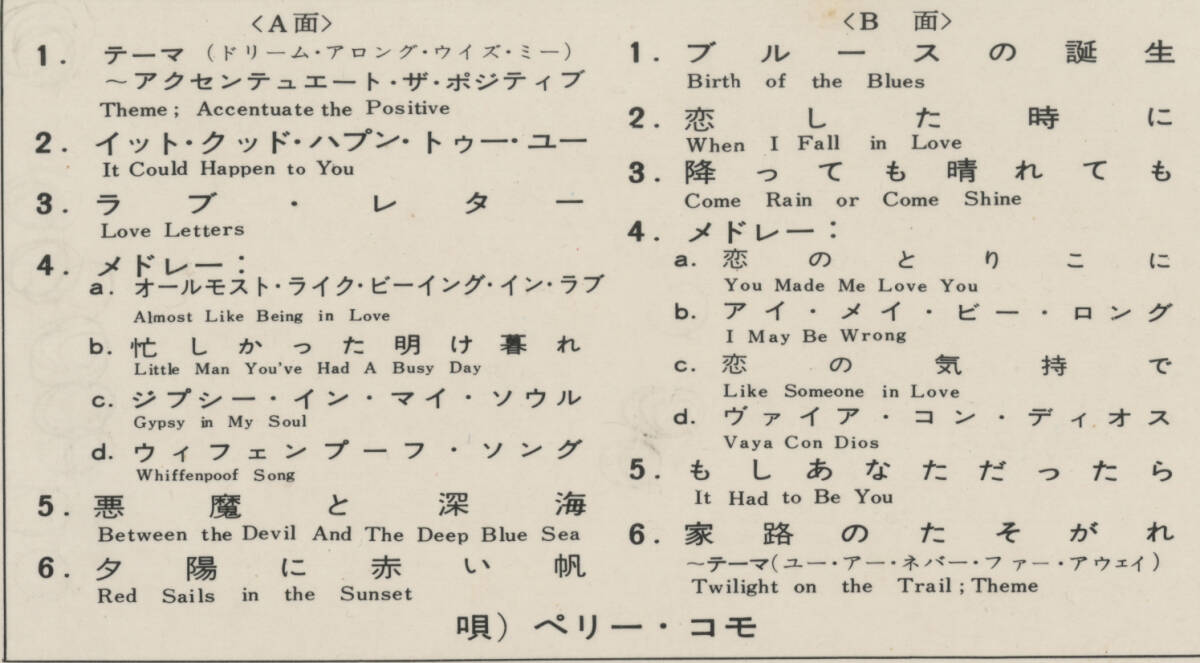 〈A面〉
1. テーマ（ドリーム・アロング・ウイズ・ミー）
～アクセンテュエート・ザ・ポジティブ
Theme; Accentuate the Positive
2. イット・クッド・ハプン・トゥー・ユー
It Could Happen to You
3. ラブ・レター
Love Letters
4. メドレー：
a. オールモスト・ライク・ビーイング・イン・ラブ
Almost Like Being in Love
b. 忙しかった明け暮れ
Little Man You've Had A Busy Day
c. ジプシー・イン・マイ・ソウル
Gypsy in My Soul
d. ウィフェンプーフ・ソング
Whiffenpoof Song
5. 悪魔と深海
Between the Devil And The Deep Blue Sea
6. 夕陽に赤い帆
Red Sails in the Sunset
〈B面〉
1. ブルースの誕生
Birth of the Blues
2. 恋した時に
When I Fall in Love
3. 降っても晴れても
Come Rain or Come Shine
4. メドレー：
a. 恋のとりこに
You Made Me Love You
b. アイ・メイ・ビー・ロング
I May Be Wrong
c. 恋の気持で
Like Someone in Love
d. ヴァイア・コン・ディオス
Vaya Con Dios
5. もしあなただったら
It Had to Be You
6. 家路のたそがれ
～テーマ（ユー・アー・ネバー・ファー・アウェイ）
Twilight on the Trail; Theme
唄）ペリー・コモ